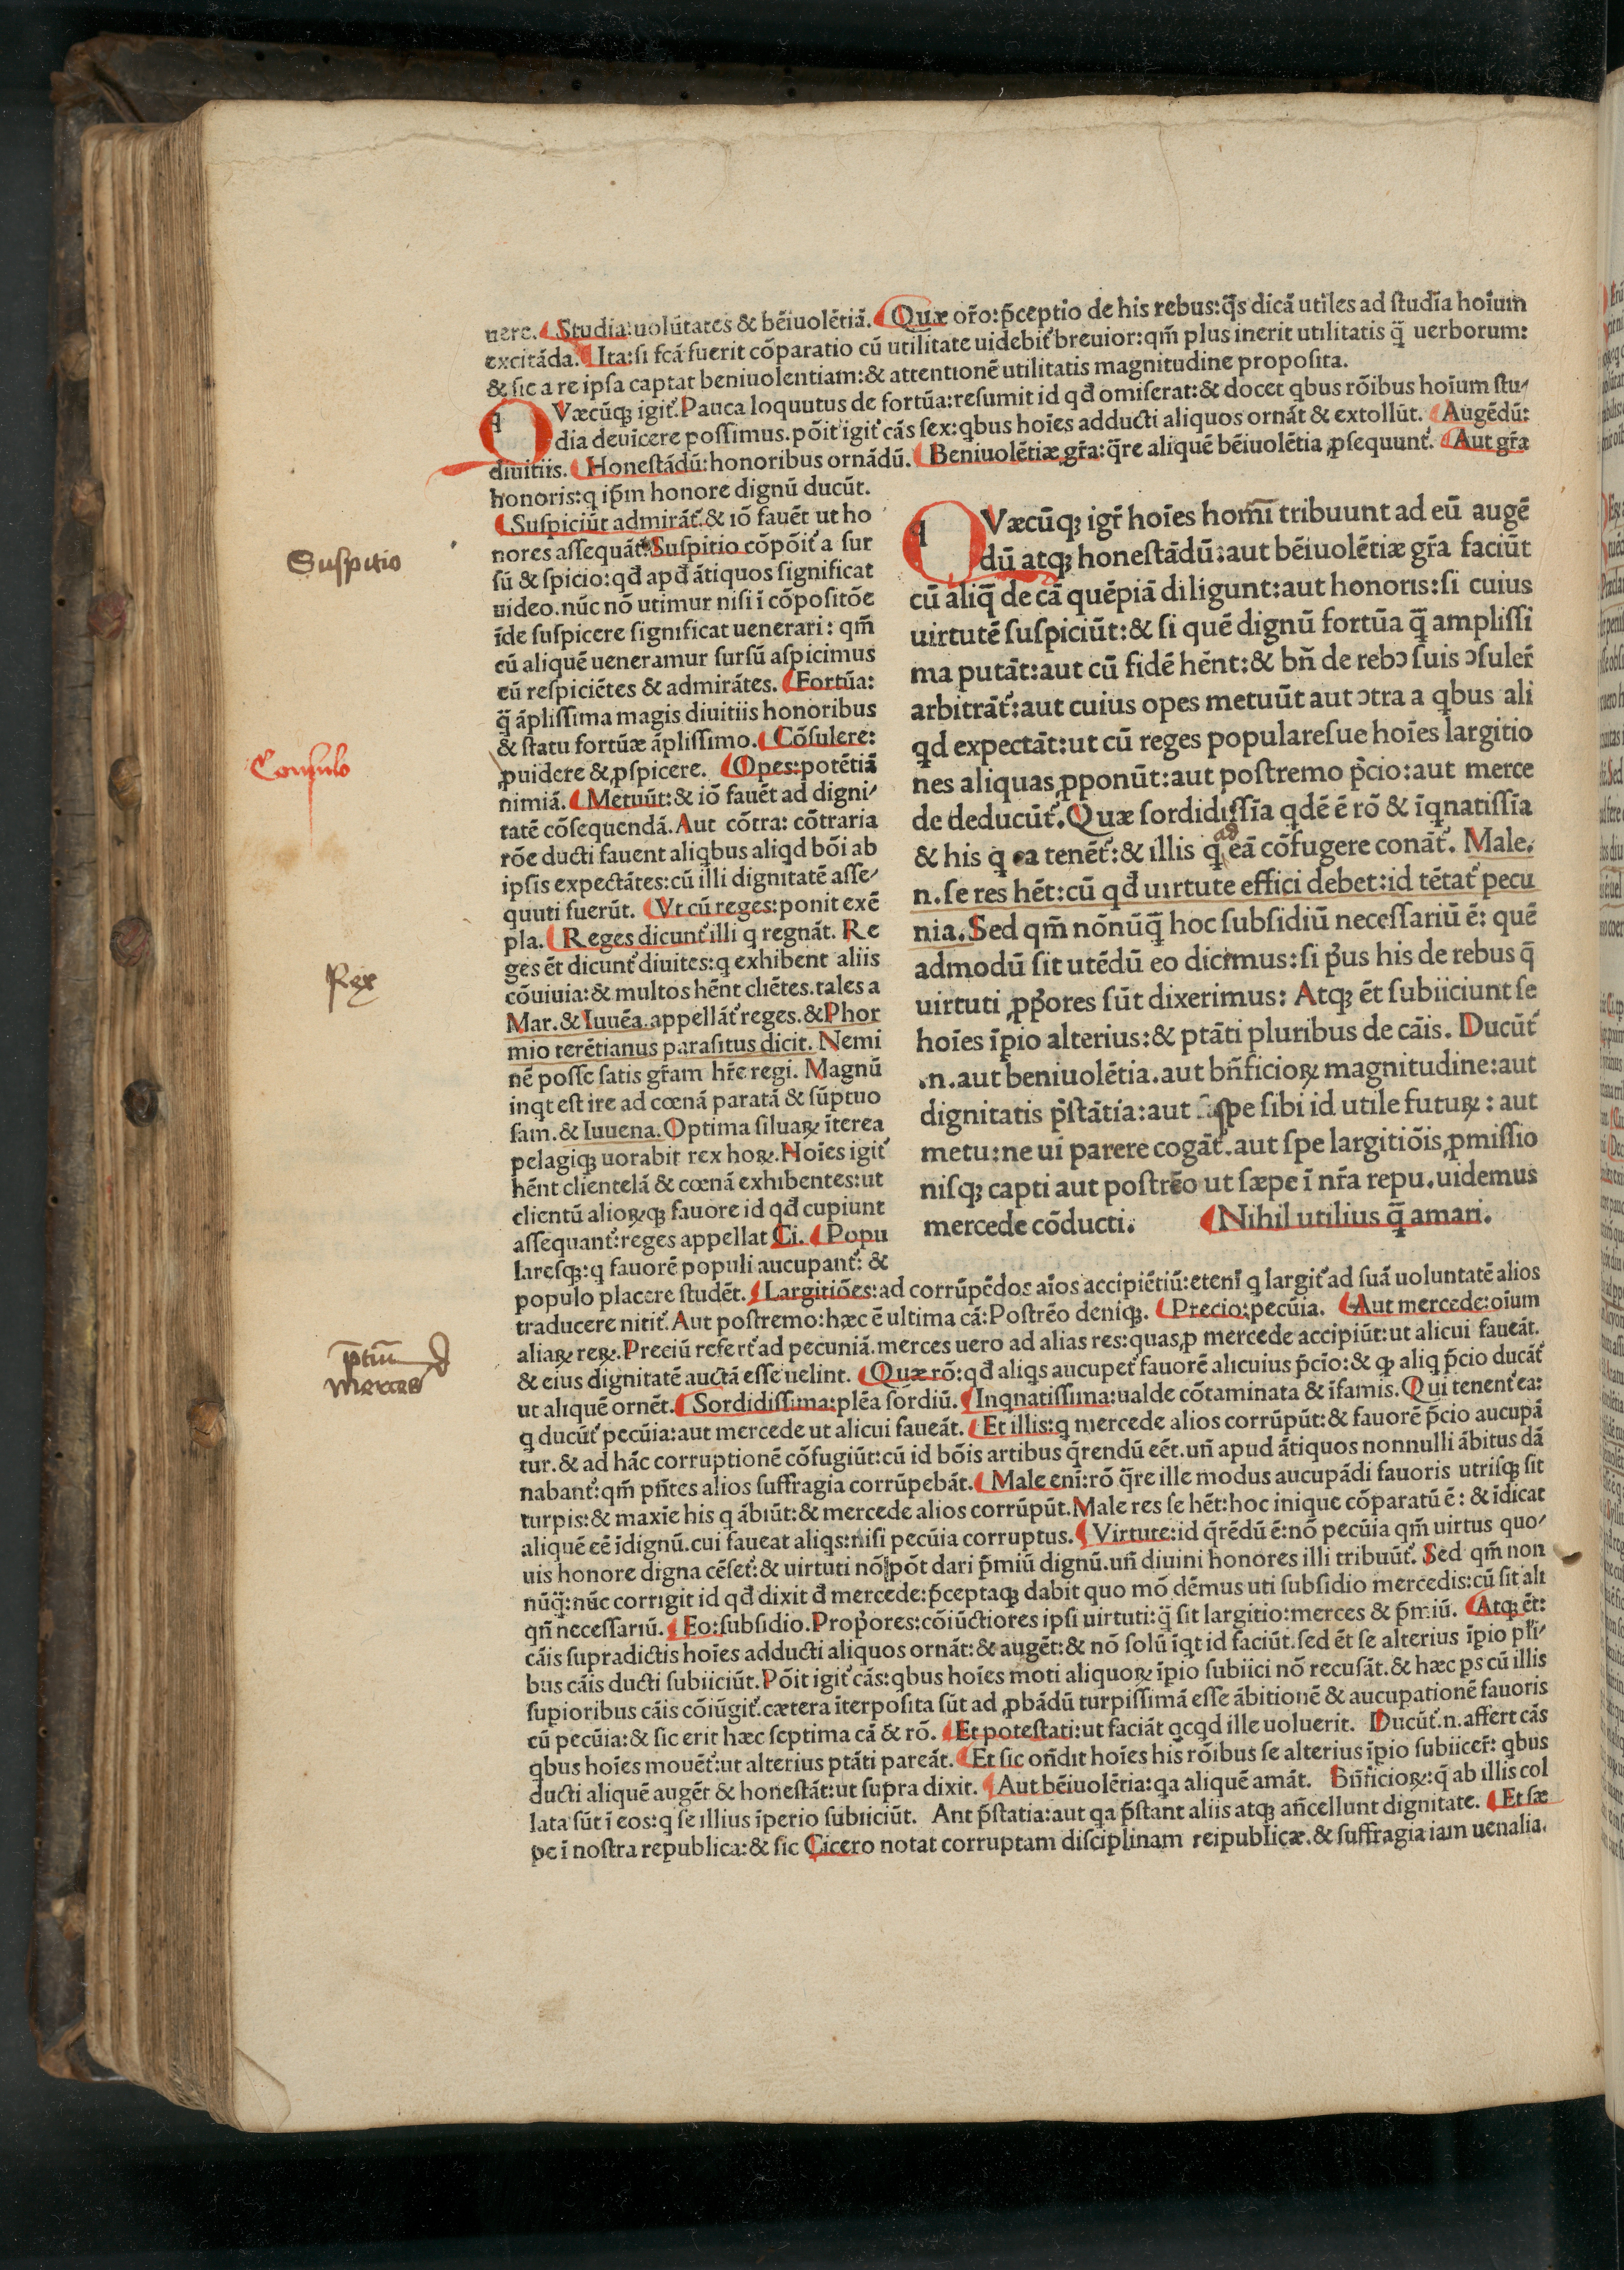 nere. Studia: uolūtates & bēiuolētiā. Quæ or̄o: p̄ceptio de his rebus: q̄s dicā utiles ad ſtudīa hoīum
excitāda. Ita: ſi fcā fuerit cōparatio cū utilitate uidebit᷑ breuior: qm̄ plus inerit utilitatis q̄ uerborum:
& ſic a re ipſa captat beniuolentiam: & attentionē utilitatis magnitudine propoſita.
QVæcūq; igit᷑. Pauca loquutus de fortūa: reſumit id qđ omiſerat: & docet qbus rōibus hoīum ſtu-
dia deuīcere poſſimus. pōit igit᷑ cās ſex: qbus hoīes adducti aliquos ornāt & extollūt. Augēdū:
diuitiis. Honeſtādū: honoribus ornādū. Beniuolētiæ gr̄a: q̄re aliquē bēiuolētia ꝓſequunt᷑. Aut gr̄a
honoris: q ip̄m honore dignū ducūt.
Suſpiciūt admirāt᷑. & iō fauēt ut ho
nores aſſequāt᷑. Suſpitio cōpōit᷑ a ſur
ſū & ſpicio: qđ apđ ātiquos ſignificat
uideo. nūc nō utimur niſi ī cōpoſitōe
īde ſuſpicere ſignificat uenerari: qm̄
cū aliquē ueneramur ſurſū aſpicimus
eū reſpiciētes & admirātes. Fortūa:
q̄ āpliſſima magis diuitiis honoribus
& ſtatu fortūæ āpliſſimo. Cōſulere:
ꝓuidere & ꝓſpicere. Opes: potētiā
nimiā. Metuūt: & iō fauēt ad digni-
tatē cōſequendā. Aut cōtra: cōtraria
rōe ducti fauent aliqbus aliqd bōi ab
ipſis expectātes: cū illi dignitatē aſſe-
quuti fuerūt. Vt cū reges: ponit exē
pla. Reges dicunt᷑ illi q regnāt. Re
ges ēt dicunt᷑ diuites: q exhibent aliis
cōuiuia: & multos hēnt cliētes. tales a
Mar. & Iuuēa. appellāt᷑ reges. & Phor
mio terētianus paraſitus dicit. Nemi
nē poſſe ſatis gr̄am hr̄e regi. Magnū
inqt eſt ire ad cœnā paratā & ſūptuo
ſam. & Iuuena. Optima ſiluaꝝ īterea
pelagiq; uorabit rex hoꝝ. Hoīes igit᷑
hēnt clientelā & cœnā exhibentes: ut
clientū alioꝝq; fauore id qđ cupiunt
aſſequant᷑: reges appellat Ci. Popu
lareſq;: q fauorē populi aucupant᷑: &
QVæcūq; igr̄ hoīes homī tribuunt ad eū augē
dū atq; honeſtādū: aut bēiuolētiæ gr̄a faciūt
cū aliq̄ de cā quēpiā diligunt: aut honoris: ſi cuius
uirtutē ſuſpiciūt: & ſi quē dignū fortūa q̄ ampliſſi
ma putāt: aut cū fidē hēnt: & bn̄ de rebꝰ ſuis ꝯſuler̄
arbitrāt᷑: aut cuius opes metuūt aut ꝯtra a qbus ali
qd expectāt: ut cū reges populareſue hoīes largitio
nes aliquas ꝓponūt: aut poſtremo p̄cio: aut merce
de deducūt᷑. Quæ ſordidiſſīa qdē ē rō & īqnatiſſīa
& his q ea tenēt᷑: & illis q ad eā cōfugere conāt᷑. Male.
n. ſe res hēt: cū qđ uirtute effici debet: id tētat᷑ pecu
nia. Sed qm̄ nōnūq̄ hoc ſubſidiū neceſſariū ē: quē
admodū ſit utēdū eo dicimus: ſi pͥus his de rebus q̄
uirtuti ꝓpͥores ſūt dixerimus: Atq; ēt ſubiiciunt ſe
hoīes īpio alterius: & ptāti pluribus de cāis. Ducūt᷑
.n. aut beniuolētia. aut bn̄ficioꝝ magnitudine: aut
dignitatis p̄ſtātia: aut ſpe ſibi id utile futuꝝ: aut
metu: ne ui parere cogāt᷑. aut ſpe largitiōis ꝓmiſſio
niſq; capti aut poſtrēo ut ſæpe ī nr̄a repu. uidemus
mercede cōducti. Nihil utilius q̄ amari.
populo placere ſtudēt. Largitiōes: ad corrūpēdos aīos accipiētiū: etenī q largit᷑ ad ſuā uoluntatē alios
traducere nitit᷑. Aut poſtremo: hæc ē ultima cā: Poſtrēo deniq;. Precio: pecūia. Aut mercede: oīum
aliaꝝ reꝝ. Preciū refert᷑ ad pecuniā. merces uero ad alias res: quas ꝓ mercede accipiūt: ut alicui faueāt.
& eius dignitatē auctā eſſe uelint. Quæ rō: qđ aliqs aucupet᷑ fauorē alicuius p̄cio: & ꝙ aliq p̄cio ducāt᷑
ut aliquē ornēt. Sordidiſſima: plēa ſordiū. Inqnatiſſima: ualde cōtaminata & īfamis. Qui tenent᷑ ea:
q ducūt᷑ pecūia: aut mercede ut alicui faueāt. Et illis: q mercede alios corrūpūt: & fauorē p̄cio aucupā
tur. & ad hāc corruptionē cōfugiūt: cū id bōis artibus q̄rendū eēt. un̄ apud ātiquos nonnulli ābitus dā
nabant᷑: qm̄ pn̄tes alios ſuffragia corrūpebāt. Male enī: rō q̄re ille modus aucupādi fauoris utriſq; ſit
turpis: & maxīe his q ābiūt: & mercede alios corrūpūt. Male res ſe hēt: hoc inique cōparatū ē: & īdicat
aliquē eē īdignū. cui faueat aliqs: niſi pecūia corruptus. Virtute: id q̄rēdū ē: nō pecūia qm̄ uirtus quo-
uis honore digna cēſet᷑: & uirtuti nō pōt dari p̄miū dignū. un̄ diuini honores illi tribuūt᷑. Sed qm̄ non
nūq̄: nūc corrigit id qđ dixit đ mercede: p̄ceptaq; dabit quo mō dēmus uti ſubſidio mercedis: cū ſit ali
qn̄ neceſſariū. Eo: ſubſidio. Propͥores: cōiūctiores ipſi uirtuti: q̄ ſit largitio: merces & p̄miū. Atq; ēt:
cāis ſupradictis hoīes adducti aliquos ornāt: & augēt: & nō ſolū īqt id faciūt. ſed ēt ſe alterius īpio pli-
bus cāis ducti ſubiiciūt. Pōit igit᷑ cās: qbus hoīes moti aliquoꝝ īpio ſubiici nō recuſāt. & hæc ps cū illis
ſupioribus cāis cōiūgit᷑. cætera īterpoſita ſūt ad ꝓbādū turpiſſimā eſſe ābitionē & aucupationē fauoris
cū pecūia: & ſic erit hæc ſeptima cā & rō. Et poteſtati: ut faciāt qcqd ille uoluerit. Ducūt᷑. n. affert cās
qbus hoīes mouēt᷑: ut alterius ptāti pareāt. Et ſic on̄dit hoīes his rōibus ſe alterius īpio ſubiicer̄: qbus
ducti aliquē augēt & honeſtāt: ut ſupra dixit. Aut bēiuolētia: qa aliquē amāt. Bn̄ficioꝝ: q̄ ab illis col
lata ſūt ī eos: q ſe illius īperio ſubiiciūt. Ant p̄ſtatia: aut qa p̄ſtant aliis atq; an̄cellunt dignitate. Et ſæ
pe ī noſtra republica: & ſic Cicero notat corruptam diſciplinam reipublicæ. & ſuffragia iam uenalia.
Suſpitio
Conſulo
Rex
p̄tiū
merces